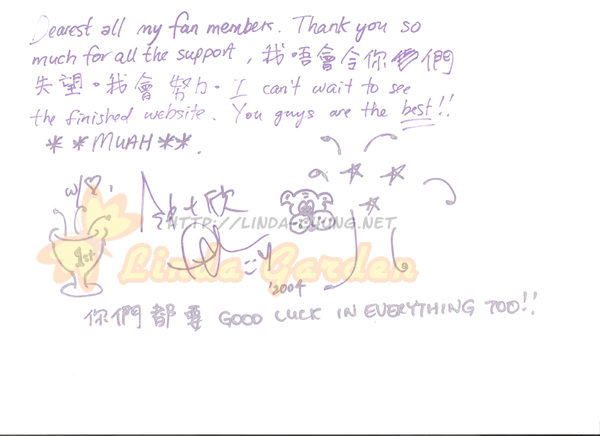 Dearest all my fan members. Thank you so
much for all the support, 我唔會令你們
失望。我會努力。I can't wait to see
the finished website. You guys are the best!!
**MUAH**.
w/♡,
欣
HTTP://LINDA-CHUNG.NET
1st
Linda Garden
'2004
你們都要 GOOD LUCK IN EVERYTHING TOO!!